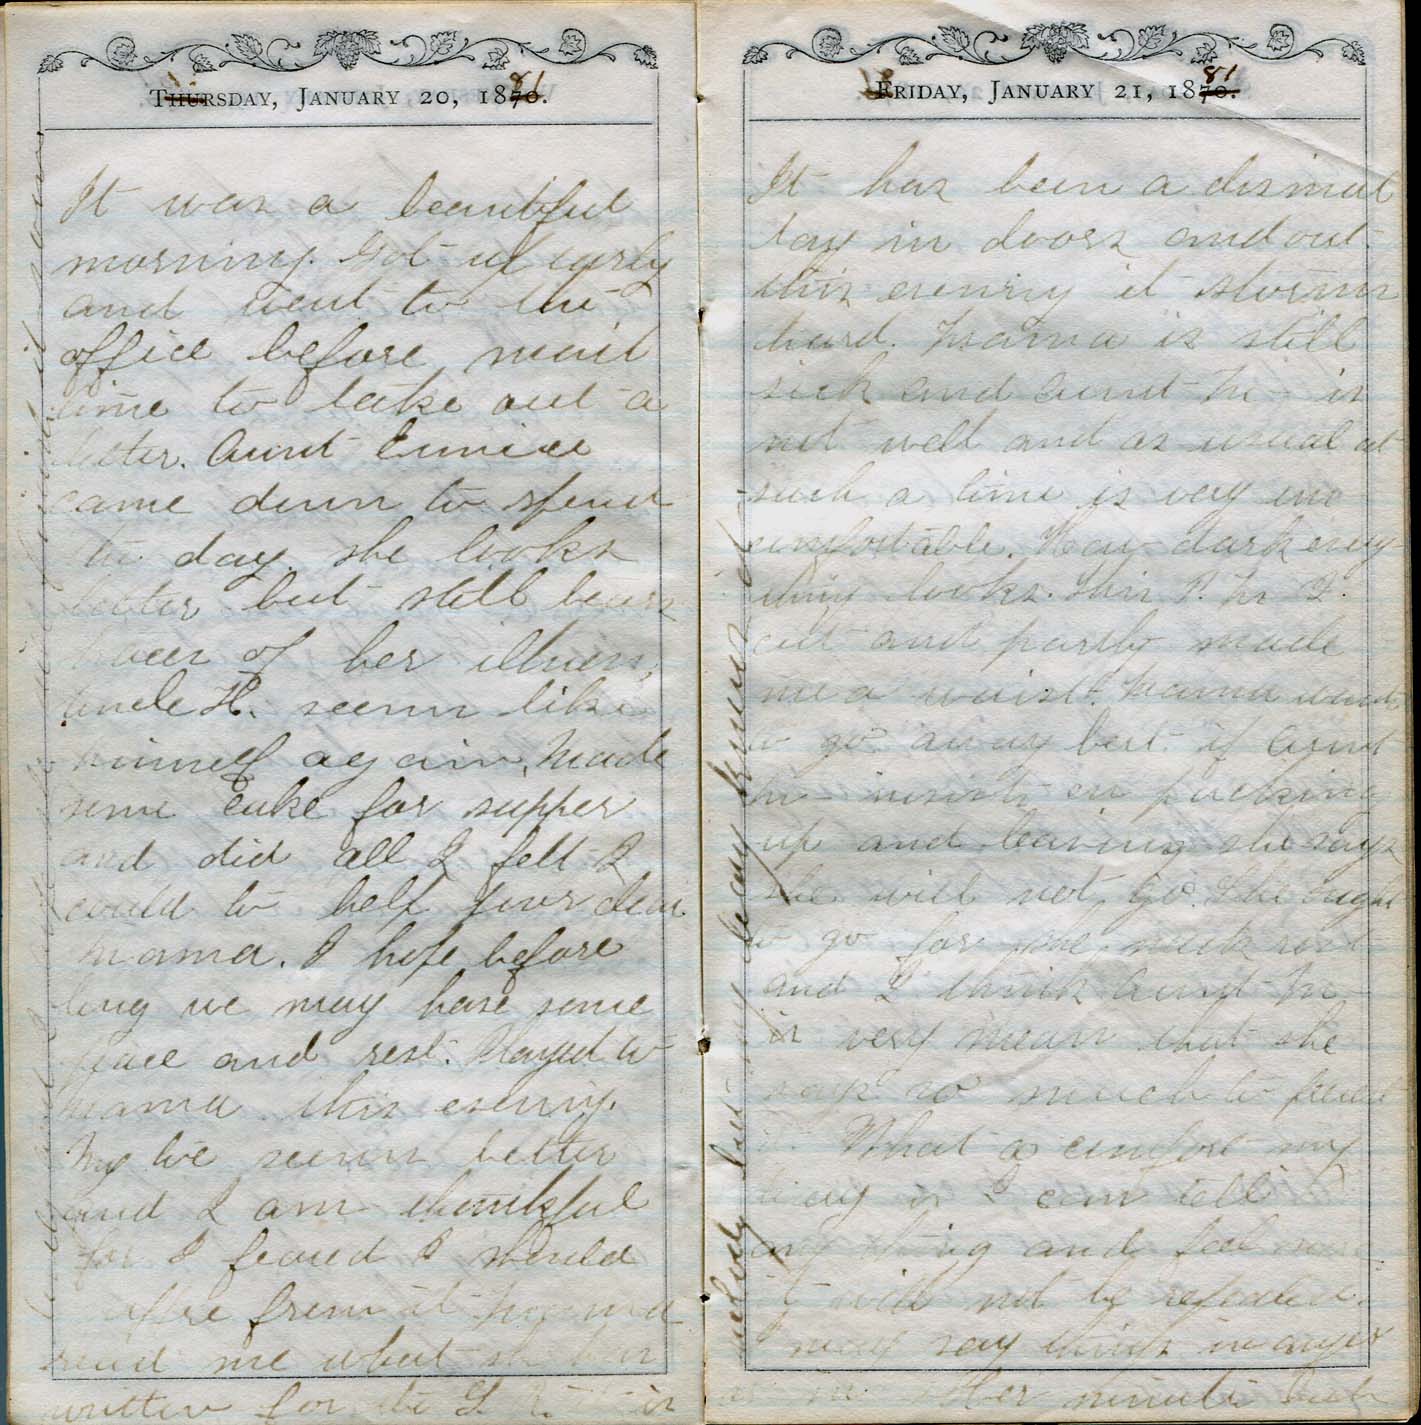 THURSDAY, JANUARY 20, 1881.
It was a beautiful
morning. Got up early
and went to the
office before mail
time to take out a
letter. Aunt Eunice
came down to spend
the day. she looks
better but still bears
traces of her illness,
Uncle H. seems like
himself again. Made
some cake for supper
and did all I felt I
could to help poor dear
Mama. I hope before
long we may have some
peace and rest. Played to
Mama this evening.
My toe seems better
and I am thankful
for I feared I should
suffer from it. Mama
read me what she has
written for the is
FRIDAY, JANUARY 21, 1881.
It has been a dismal
day in doors and out
this evening it storms
hard. Mama is still
sick and Aunt M- is
not well and as usual at
such a time is very un
comfortable. How dark every
thing looks. This P. M. I
cut and partly made
me a waist. Mama wants
to go away but if Aunt
M- insists on packing
up and leaving she says
she will not go. She ought
to go for she needs rest
and I think Aunt M
is very mean that she
says so much to
it. What a comfort my
diary is I can tell
any thing and feel sure
it will not be repeated.
I may say things in anger
other minute but
nobody but my diary knows it